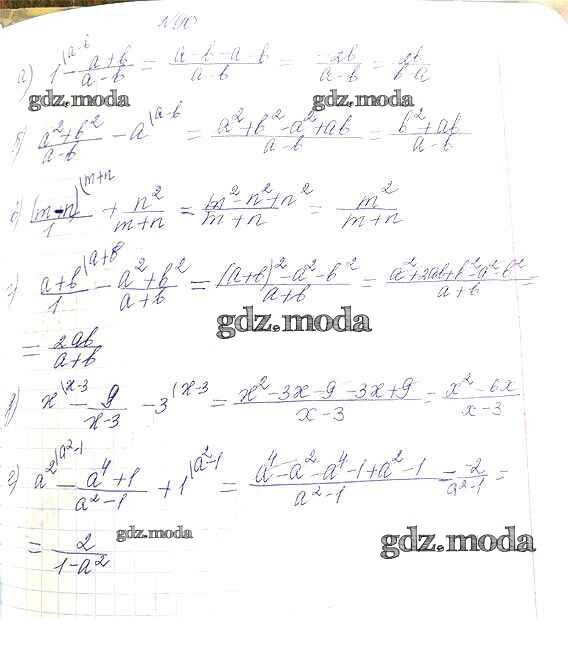 N 90
а) 1^{|a-b} - \frac{a+b}{a-b} = \frac{a-b-a-b}{a-b} = \frac{-2b}{a-b} = \frac{2b}{b-a}
gdz.moda gdz.moda
б) \frac{a^2+b^2}{a-b} - a^{|a-b} = \frac{a^2+b^2-a^2+ab}{a-b} = \frac{b^2+ab}{a-b}
в) \frac{(m-n)}{1}^{|m+n} + \frac{n^2}{m+n} = \frac{m^2-n^2+n^2}{m+n} = \frac{m^2}{m+n}
г) \frac{a+b}{1}^{|a+b} - \frac{a^2+b^2}{a+b} = \frac{(a+b)^2-a^2-b^2}{a+b} = \frac{a^2+2ab+b^2-a^2-b^2}{a+b} =
gdz.moda
= \frac{2ab}{a+b}
x^{|x-3} - \frac{9}{x-3} - 3^{|x-3} = \frac{x^2-3x-9-3x+9}{x-3} = \frac{x^2-6x}{x-3}
a^2^{|a^2-1} - \frac{a^4+1}{a^2-1} + 1^{|a^2-1} = \frac{a^4-a^2-a^4-1+a^2-1}{a^2-1} = \frac{-2}{a^2-1} =
gdz.moda gdz.moda
= \frac{2}{1-a^2}